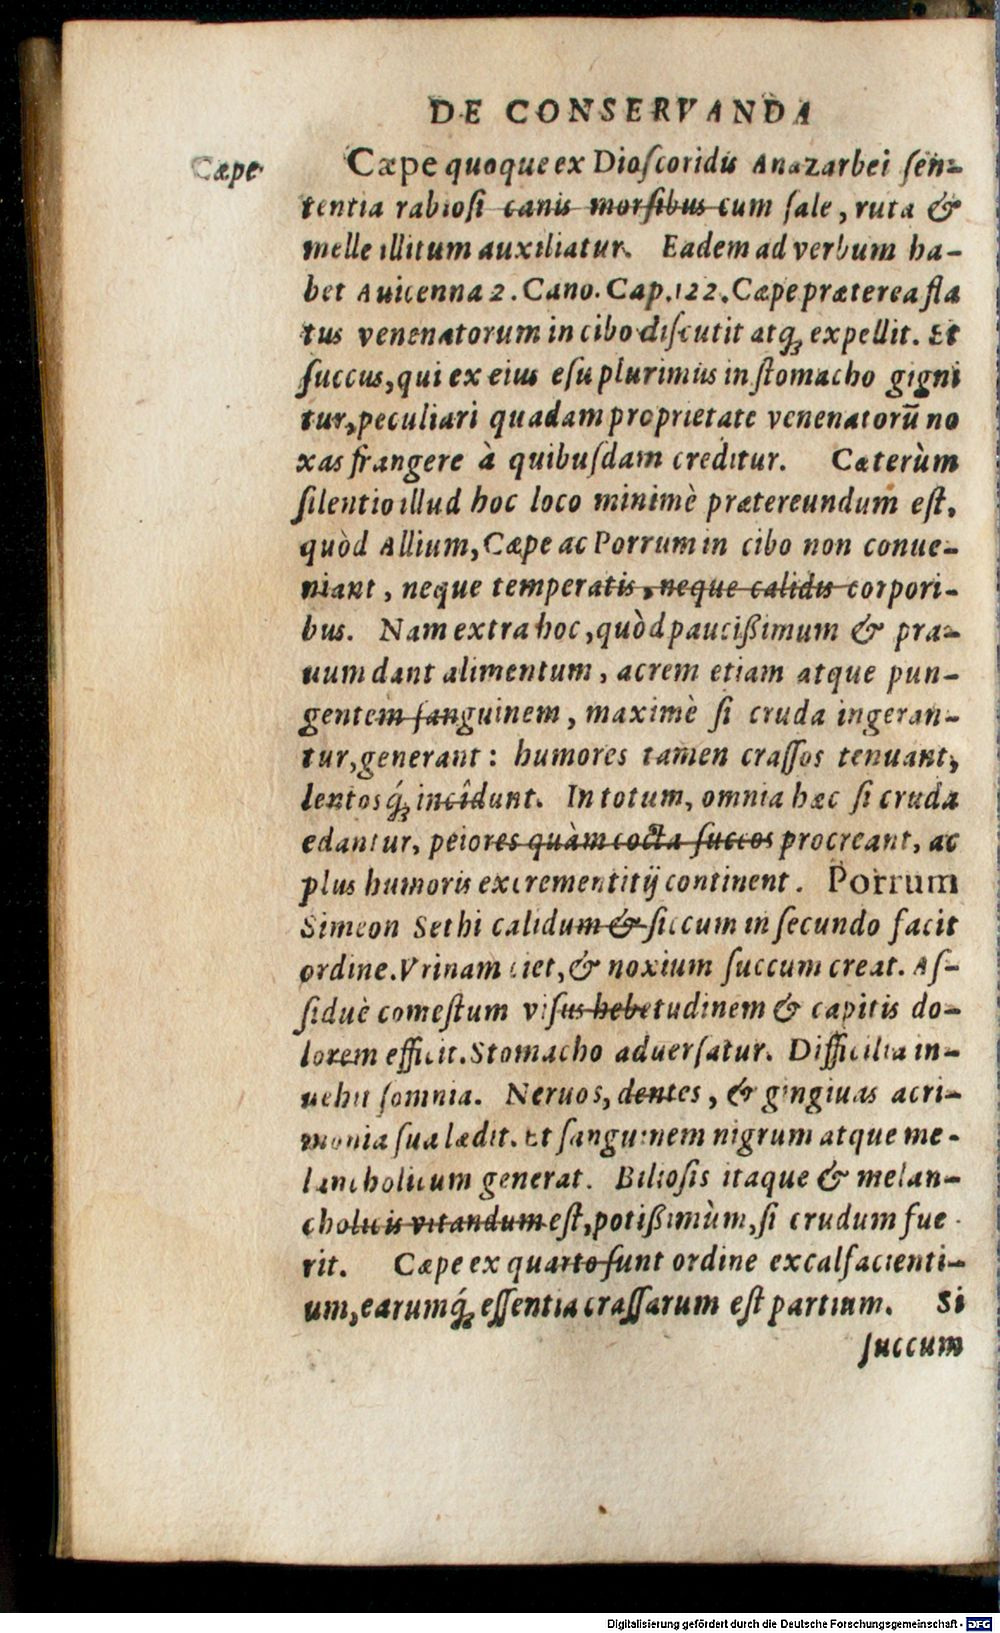 DE CONSERVANDA
Cæpe
Cæpe quoque ex Dioſcoridis Anazarbei ſen-
tentia rabioſi canis morſibus cum ſale, ruta &
melle illitum auxiliatur. Eadem ad verbum ha-
bet Auicenna 2. Cano. Cap. 122. Cæpe præterea fla
tus venenatorum in cibo diſcutit atq; expellit. Et
ſuccus, qui ex eius eſu plurimus in ſtomacho gigni
tur, peculiari quadam proprietate venenatorū no
xas frangere à quibuſdam creditur. Cæterùm
ſilentio illud hoc loco minimè prætereundum eſt,
quòd Allium, Cæpe ac Porrum in cibo non conue-
niant, neque temperatis, neque calidis corpori-
bus. Nam extra hoc, quòd paucißimum & pra-
uum dant alimentum, acrem etiam atque pun-
gentem ſanguinem, maximè ſi cruda ingeran-
tur, generant: humores tamen craſſos tenuant,
lentosq́; incîdunt. In totum, omnia hæc ſi cruda
edantur, peiores quàm cocta ſuccos procreant, ac
plus humoris excrementitij continent. Porrum
Simeon Sethi calidum & ſiccum in ſecundo facit
ordine. Vrinam ciet, & noxium ſuccum creat. Aſ-
ſiduè comeſtum viſus hebetudinem & capitis do-
lorem efficit. Stomacho aduerſatur. Difficilia in-
uehit ſomnia. Neruos, dentes, & gingiuas acri-
monia ſua lædit. Et ſanguinem nigrum atque me-
lancholicum generat. Bilioſis itaque & melan-
cholicis vitandum eſt, potißimùm, ſi crudum fue
rit. Cæpe ex quarto ſunt ordine excalfacienti-
um, earumq́; eſſentia craſſarum eſt partium. Si
ſuccum
Digitalisierung gefördert durch die Deutsche Forschungsgemeinschaft - DFG